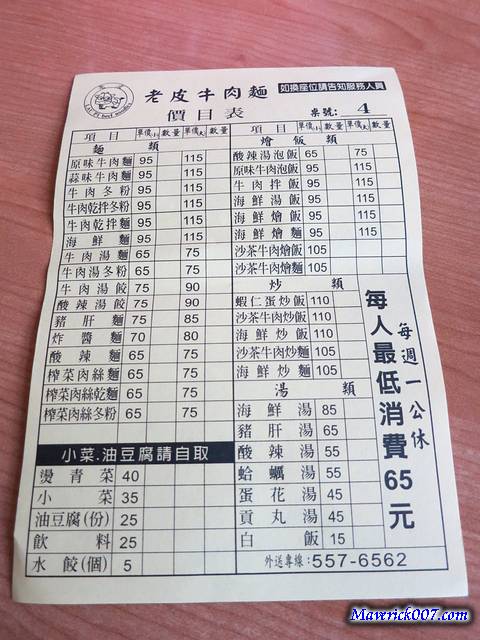 如換座位請告知服務人員
LAU PI beef noodles
老皮牛肉麵
價目表
桌號: 4
項目 單價(小) 數量 單價(大) 數量
麵類
原味牛肉麵 95 115
蒜味牛肉麵 95 115
牛肉冬粉 95 115
牛肉乾拌冬粉 95 115
牛肉乾拌麵 95 115
海鮮麵 95 115
牛肉湯麵 65 75
牛肉湯冬粉 65 75
牛肉湯餃 75 90
酸辣湯餃 75 90
豬肝麵 75 85
炸醬麵 70 80
酸辣麵 65 75
榨菜肉絲麵 65 75
榨菜肉絲乾麵 65 75
榨菜肉絲冬粉 65 75
小菜.油豆腐請自取
燙青菜 40
小菜 35
油豆腐(份) 25
飲料 25
水餃(個) 5
項目 單價(小) 數量 單價(大) 數量
燴飯類
酸辣湯泡飯 65 75
原味牛肉泡飯 95 115
牛肉拌飯 95 115
海鮮湯飯 95 115
海鮮燴飯 95 115
海鮮燴麵 95 115
沙茶牛肉燴飯 105
沙茶牛肉燴麵 105
炒類
蝦仁蛋炒飯 110
沙茶牛肉炒飯 110
海鮮炒飯 110
沙茶牛肉炒麵 110
海鮮炒麵 110
湯類
海鮮湯 85
豬肝湯 65
酸辣湯 55
蛤蠣湯 55
蛋花湯 45
貢丸湯 45
白飯 15
每週一公休
每人最低消費65元
外送專線:557-6562
Maverick007.com